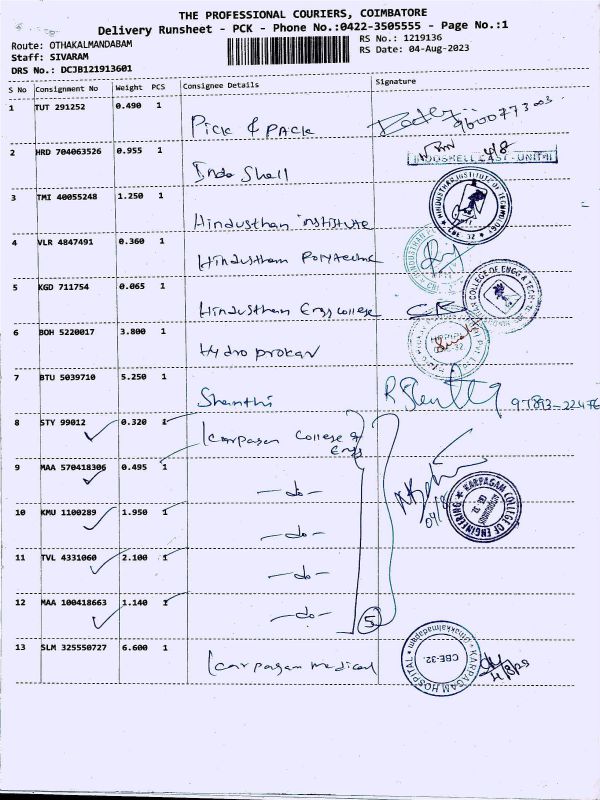 THE PROFESSIONAL COURIERS, COIMBATORE
Delivery Runsheet - PCK - Phone No.:0422-3505555 - Page No.:1
Route: OTHAKALMANDABAM
RS No.: 1219136
Staff: SIVARAM
RS Date: 04-Aug-2023
DRS No.: DCJB121913601
S No Consignment No Weight PCS Consignee Details Signature
1 TUT 291252 0.490 1
Pick & PACK
9600773003
2 HRD 704063526 0.955 1
4/8
INDOSHELL CAST - UNIT III
Indo Shell
3 TMI 40055248 1.250 1
HINDUSTHAN INSTITUTE OF TECHNOLOGY
Hindusthan institute
4 VLR 4847491 0.360 1
Hindusthan Polytechnic
5 KGD 711754 0.065 1
COLLEGE OF ENGG & TECH
Hindusthan Engg college
6 BOH 5220017 3.800 1
Hydro prokav
7 BTU 5039710 5.250 1
Shanthi
97893-22476
8 STY 99012 0.320 1
Karpagam College of
Engg
9 MAA 570418306 0.495 1
-do-
KARPAGAM COLLEGE OF ENGINEERING
10 KMU 1100289 1.950 1
04/8
-do-
11 TVL 4331060 2.100 1
-do-
12 MAA 100418663 1.140 1
-do-
5
13 SLM 325550727 6.600 1
Karpagam medical
KARPAGAM HOSPITAL
Othakkalmandapam
CBE-32.
4/8/23